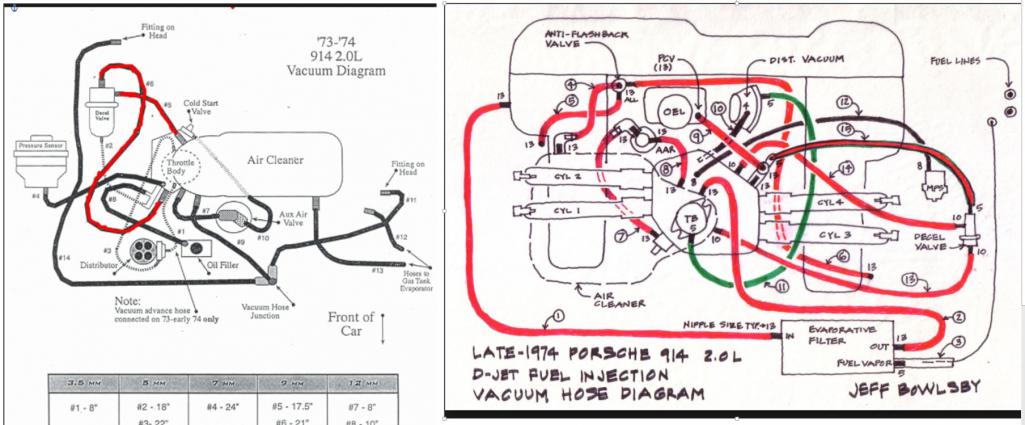 '73-'74
914 2.0L
Vacuum Diagram
Fitting on
Head
#6
Decel
Valve
#5
Cold Start
Valve
#2
Pressure Sensor
Throttle
Body
Air Cleaner
Fitting on
Head
#4
#8
#7
#11
Aux Air
Valve
#1
#9
#10
#3
#12
#14
Distributor
Oil Filler
#13
Hoses to
Gas Tank
Evaporator
Note:
Vacuum advance hose
connected on 73-early 74 only
Vacuum Hose
Junction
Front of
Car
3.5 MM 5 MM 7 MM 9 MM 12 MM
#1 - 8" #2 - 18" #4 - 24" #5 - 17.5" #7 - 8"
#3- 22" #6 - 21" #8 - 10"
ANTI-FLASHBACK
VALVE
PCV
(13)
DIST. VACUUM
FUEL LINES
13
4
13
ALL
5
OEL
10
4
5
12
13
9
15
13
13
AAR
13
8
10
5
14
8
MPS
CYL 2
8
13
CYL 1
CYL 4
5
TB
5
10
DECEL
VALVE
CYL 3
7
13
10
6
10
13
13
11
AIR
CLEANER
1
NIPPLE SIZE TYP. 13
IN
EVAPORATIVE
FILTER
13
OUT
2
3
FUEL VAPOR
5
LATE-1974 PORSCHE 914 2.0L
D-JET FUEL INJECTION
VACUUM HOSE DIAGRAM
JEFF BOWLSBY